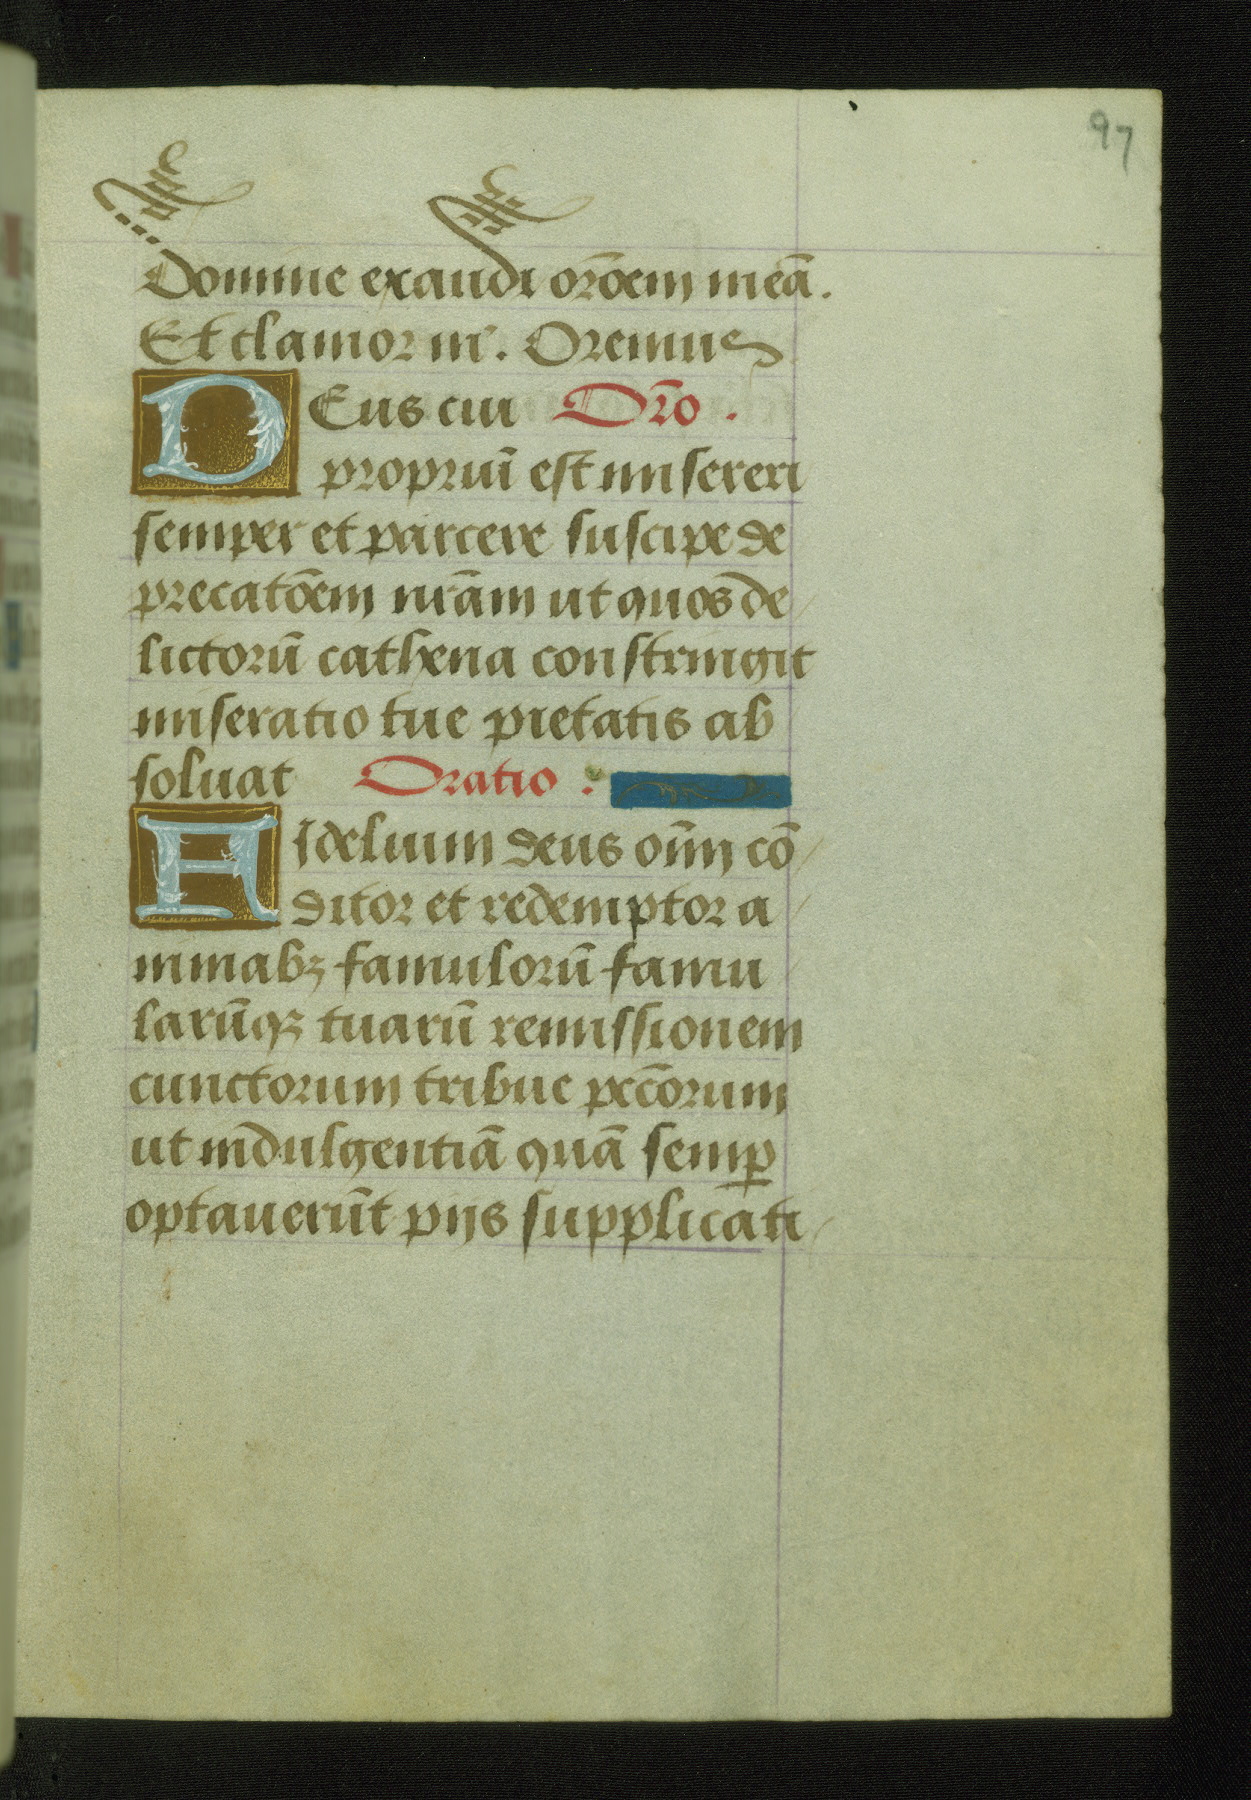 97
Domine exaudi orōem meā.
Et clamor m̄. Oremus
Deus cui Orō.
propriū est misereri
semper et parcere suscipe de
precatōem nrām ut quos de
lictorū cathena constringit
miseratio tue pietatis ab
soluat Oratio :
Fidelium deus oīm cō
ditor et redemptor a
nimabꝫ famulorū famu
larūqꝫ tuarū remissionem
cunctorum tribue pctōrum
ut indulgentiā quā semꝑ
optauerūt pijs supplicati